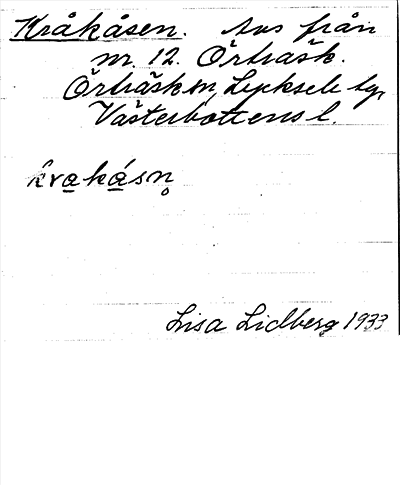 Kråkåsen. Avs från
nr. 12. Örträsk.
Örträsk sn, Lycksele tg,
Västerbottens l.
krakásn̥
Lisa Lidberg 1933